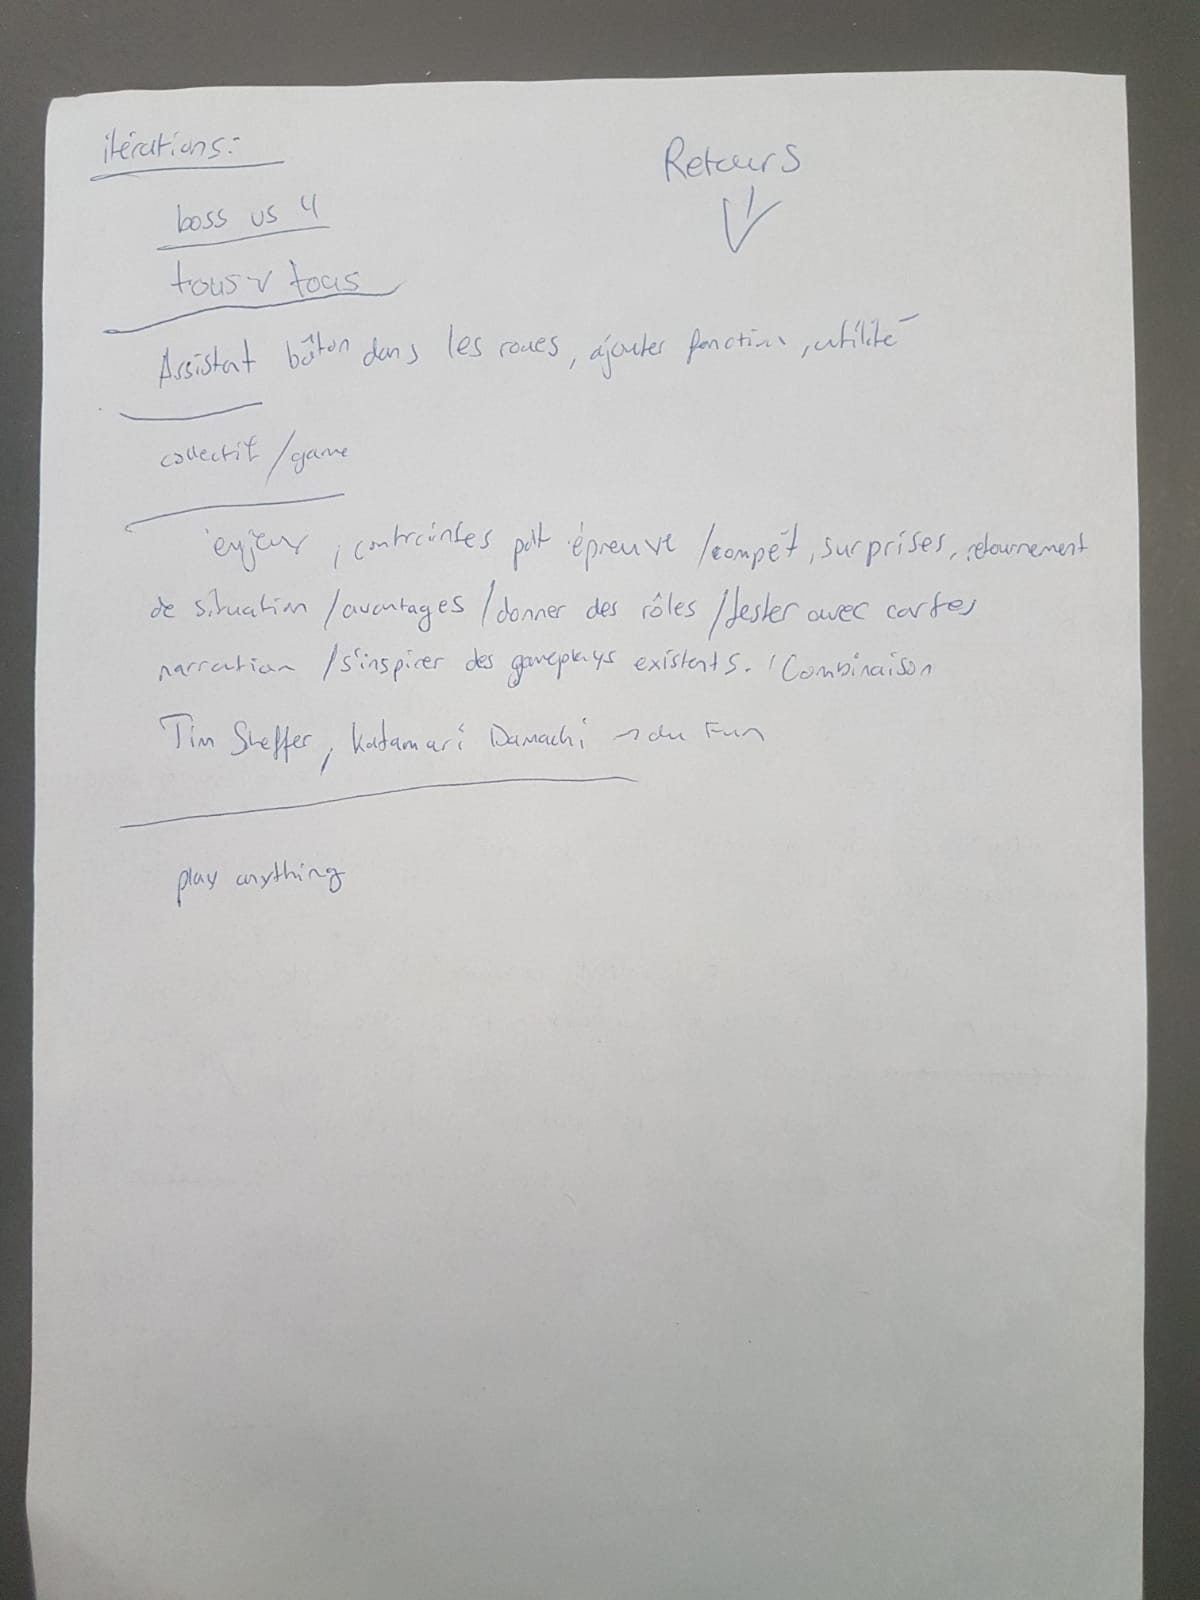 itérations:
Retours
boss vs 4
tous v tous
Assistant bâton dans les roues, ajouter fonction, utilité
collectif / game
enjeux, contraintes pdt épreuve / compét, surprises, retournement
de situation / avantages / donner des rôles / tester avec cartes
narration / s'inspirer des gameplays existents. / Combinaison
Tim Sheffer, Katamari Damachi → du Fun
play anything